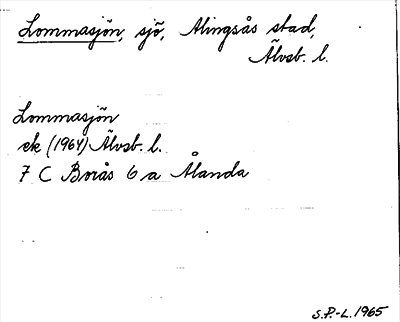 Lommasjön, sjö, Alingsås stad,
Älvsb. l.
Lommasjön
ek (1964) Älvsb. l.
7 C Borås 6 a Ålanda
S.P.-L. 1965